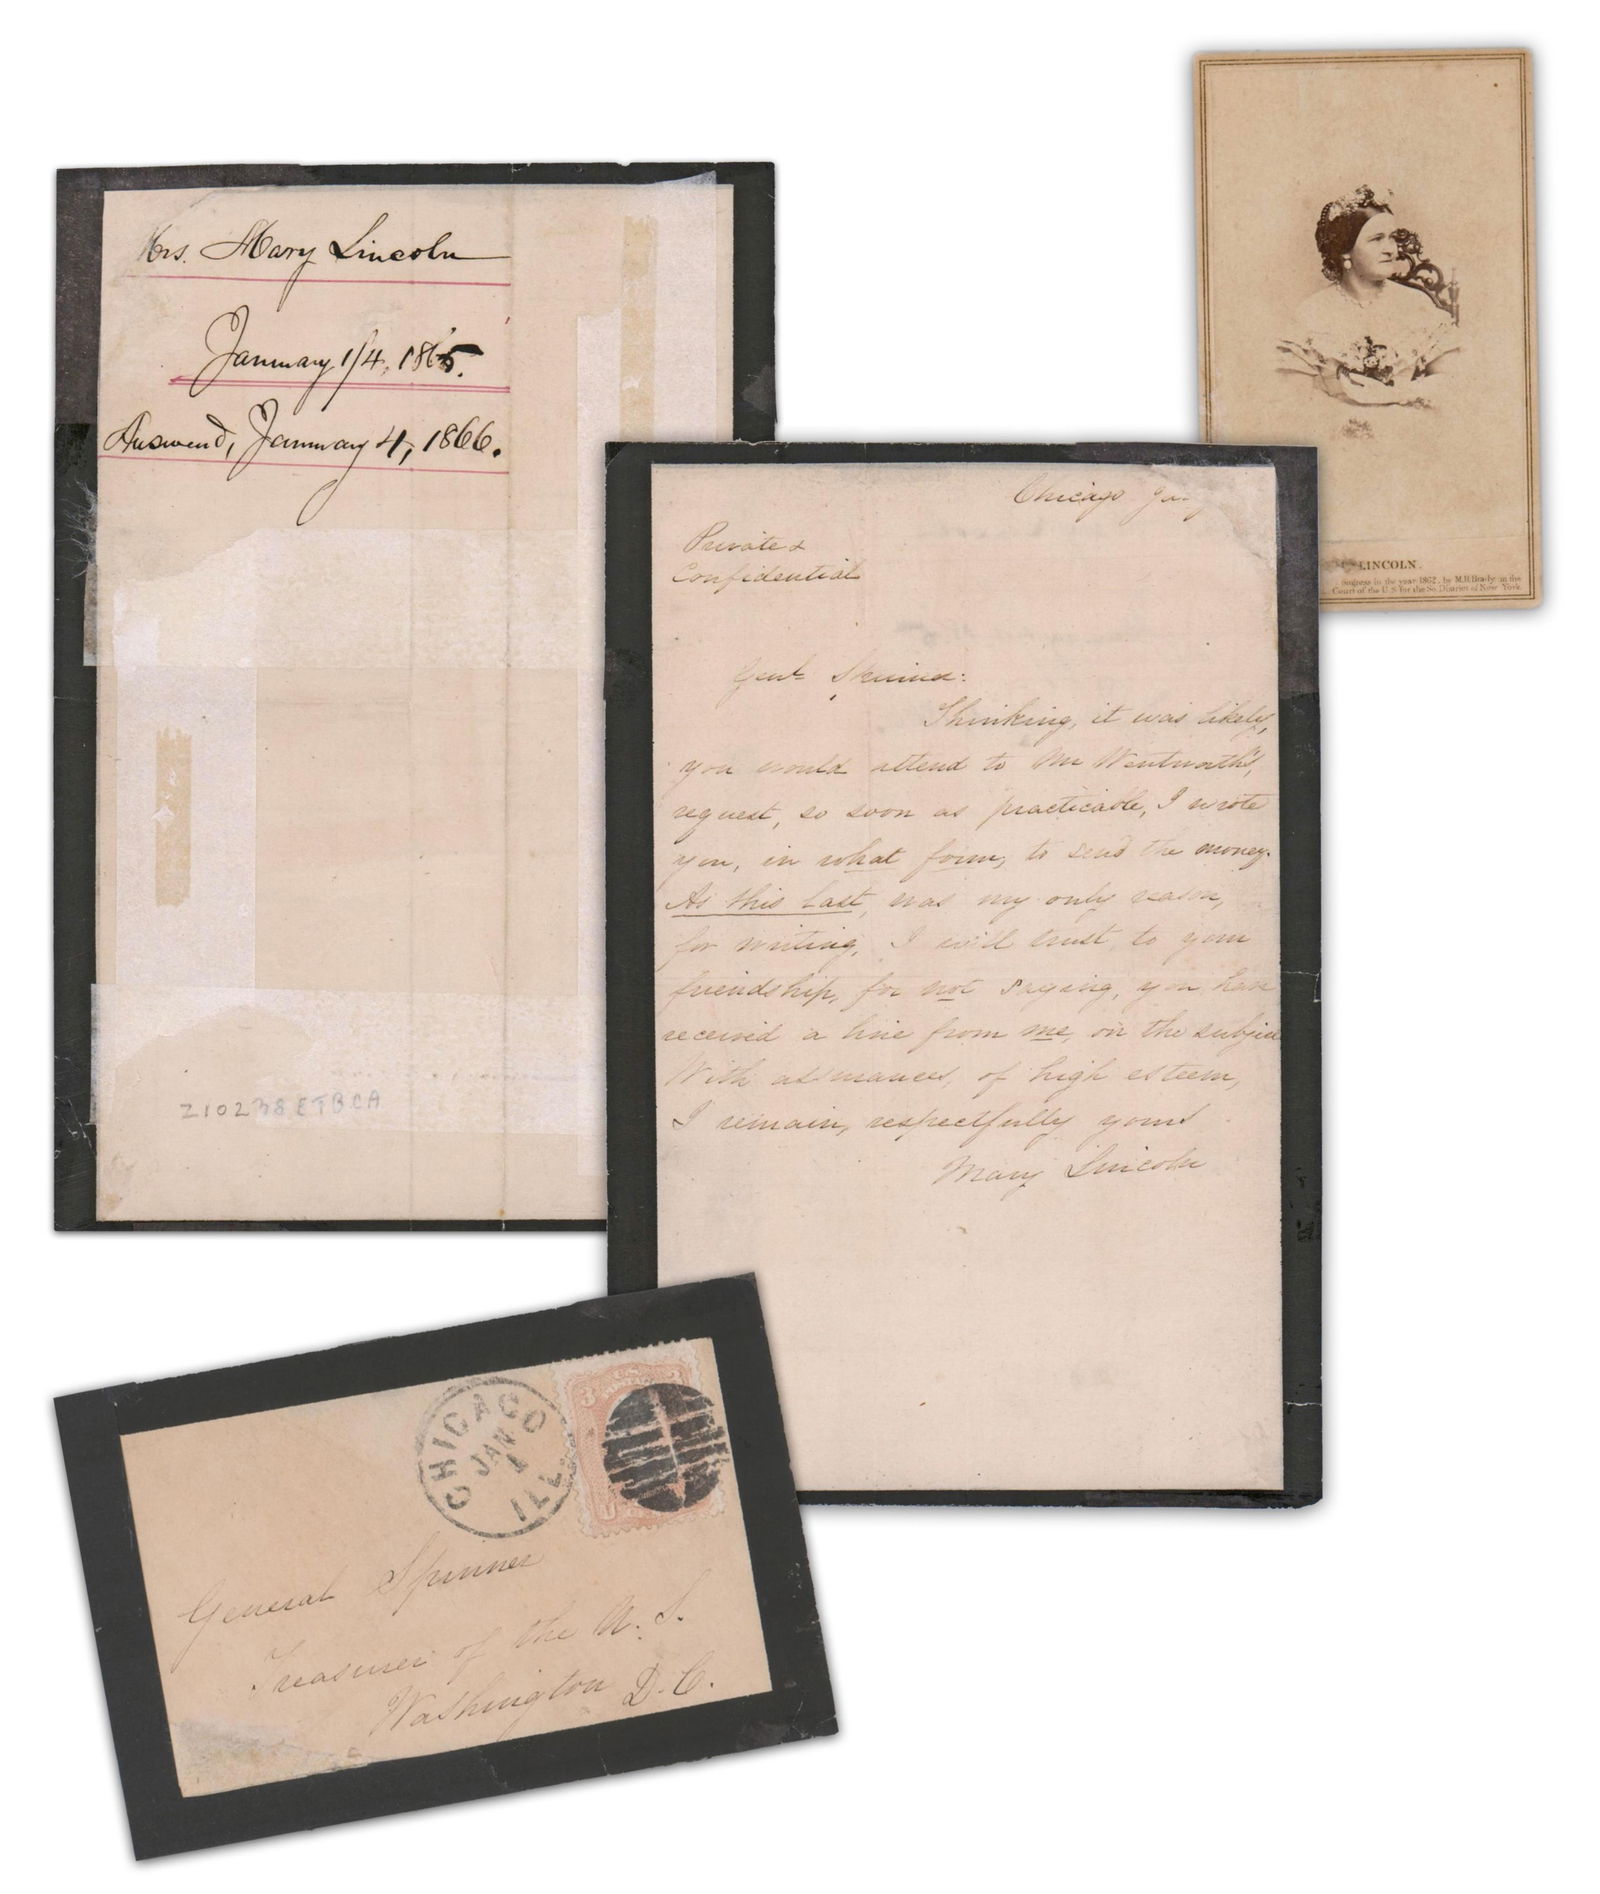 Mrs. Mary Lincoln
January 1/4, 1865.
Answered, January 4, 1866.
Z10238ETBCA
Chicago Ja
Private &
Confidential
Genl Skinner:
Thinking, it was likely,
you would attend to Mr Wentworth's,
request, so soon as practicable, I wrote
you, in what form, to send the money.
As this last, was my only reason,
for writing, I will trust, to your
friendship, for not saying, you have
received a line from me, on the subject
With assurances, of high esteem,
I remain, respectfully yours
Mary Lincoln
LINCOLN.
ongress in the year 1862, by M.B. Brady in the
Court of the U.S for the So. District of New York.
CHICAGO
JAN
1
ILL.
3
3
General Spinner
Treasurer of the U. S.
Washington D. C.